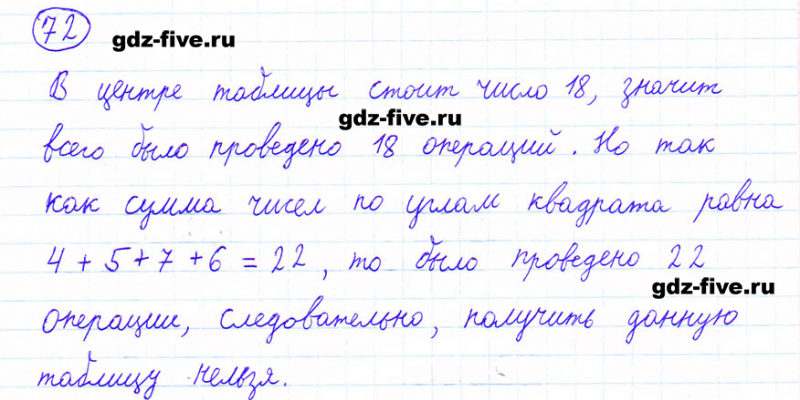 72
gdz-five.ru
В центре таблицы стоит число 18, значит
gdz-five.ru
всего было проведено 18 операций. Но так
как сумма чисел по углам квадрата равна
4 + 5 + 7 + 6 = 22, то было проведено 22
gdz-five.ru
операции, следовательно, получить данную
таблицу нельзя.